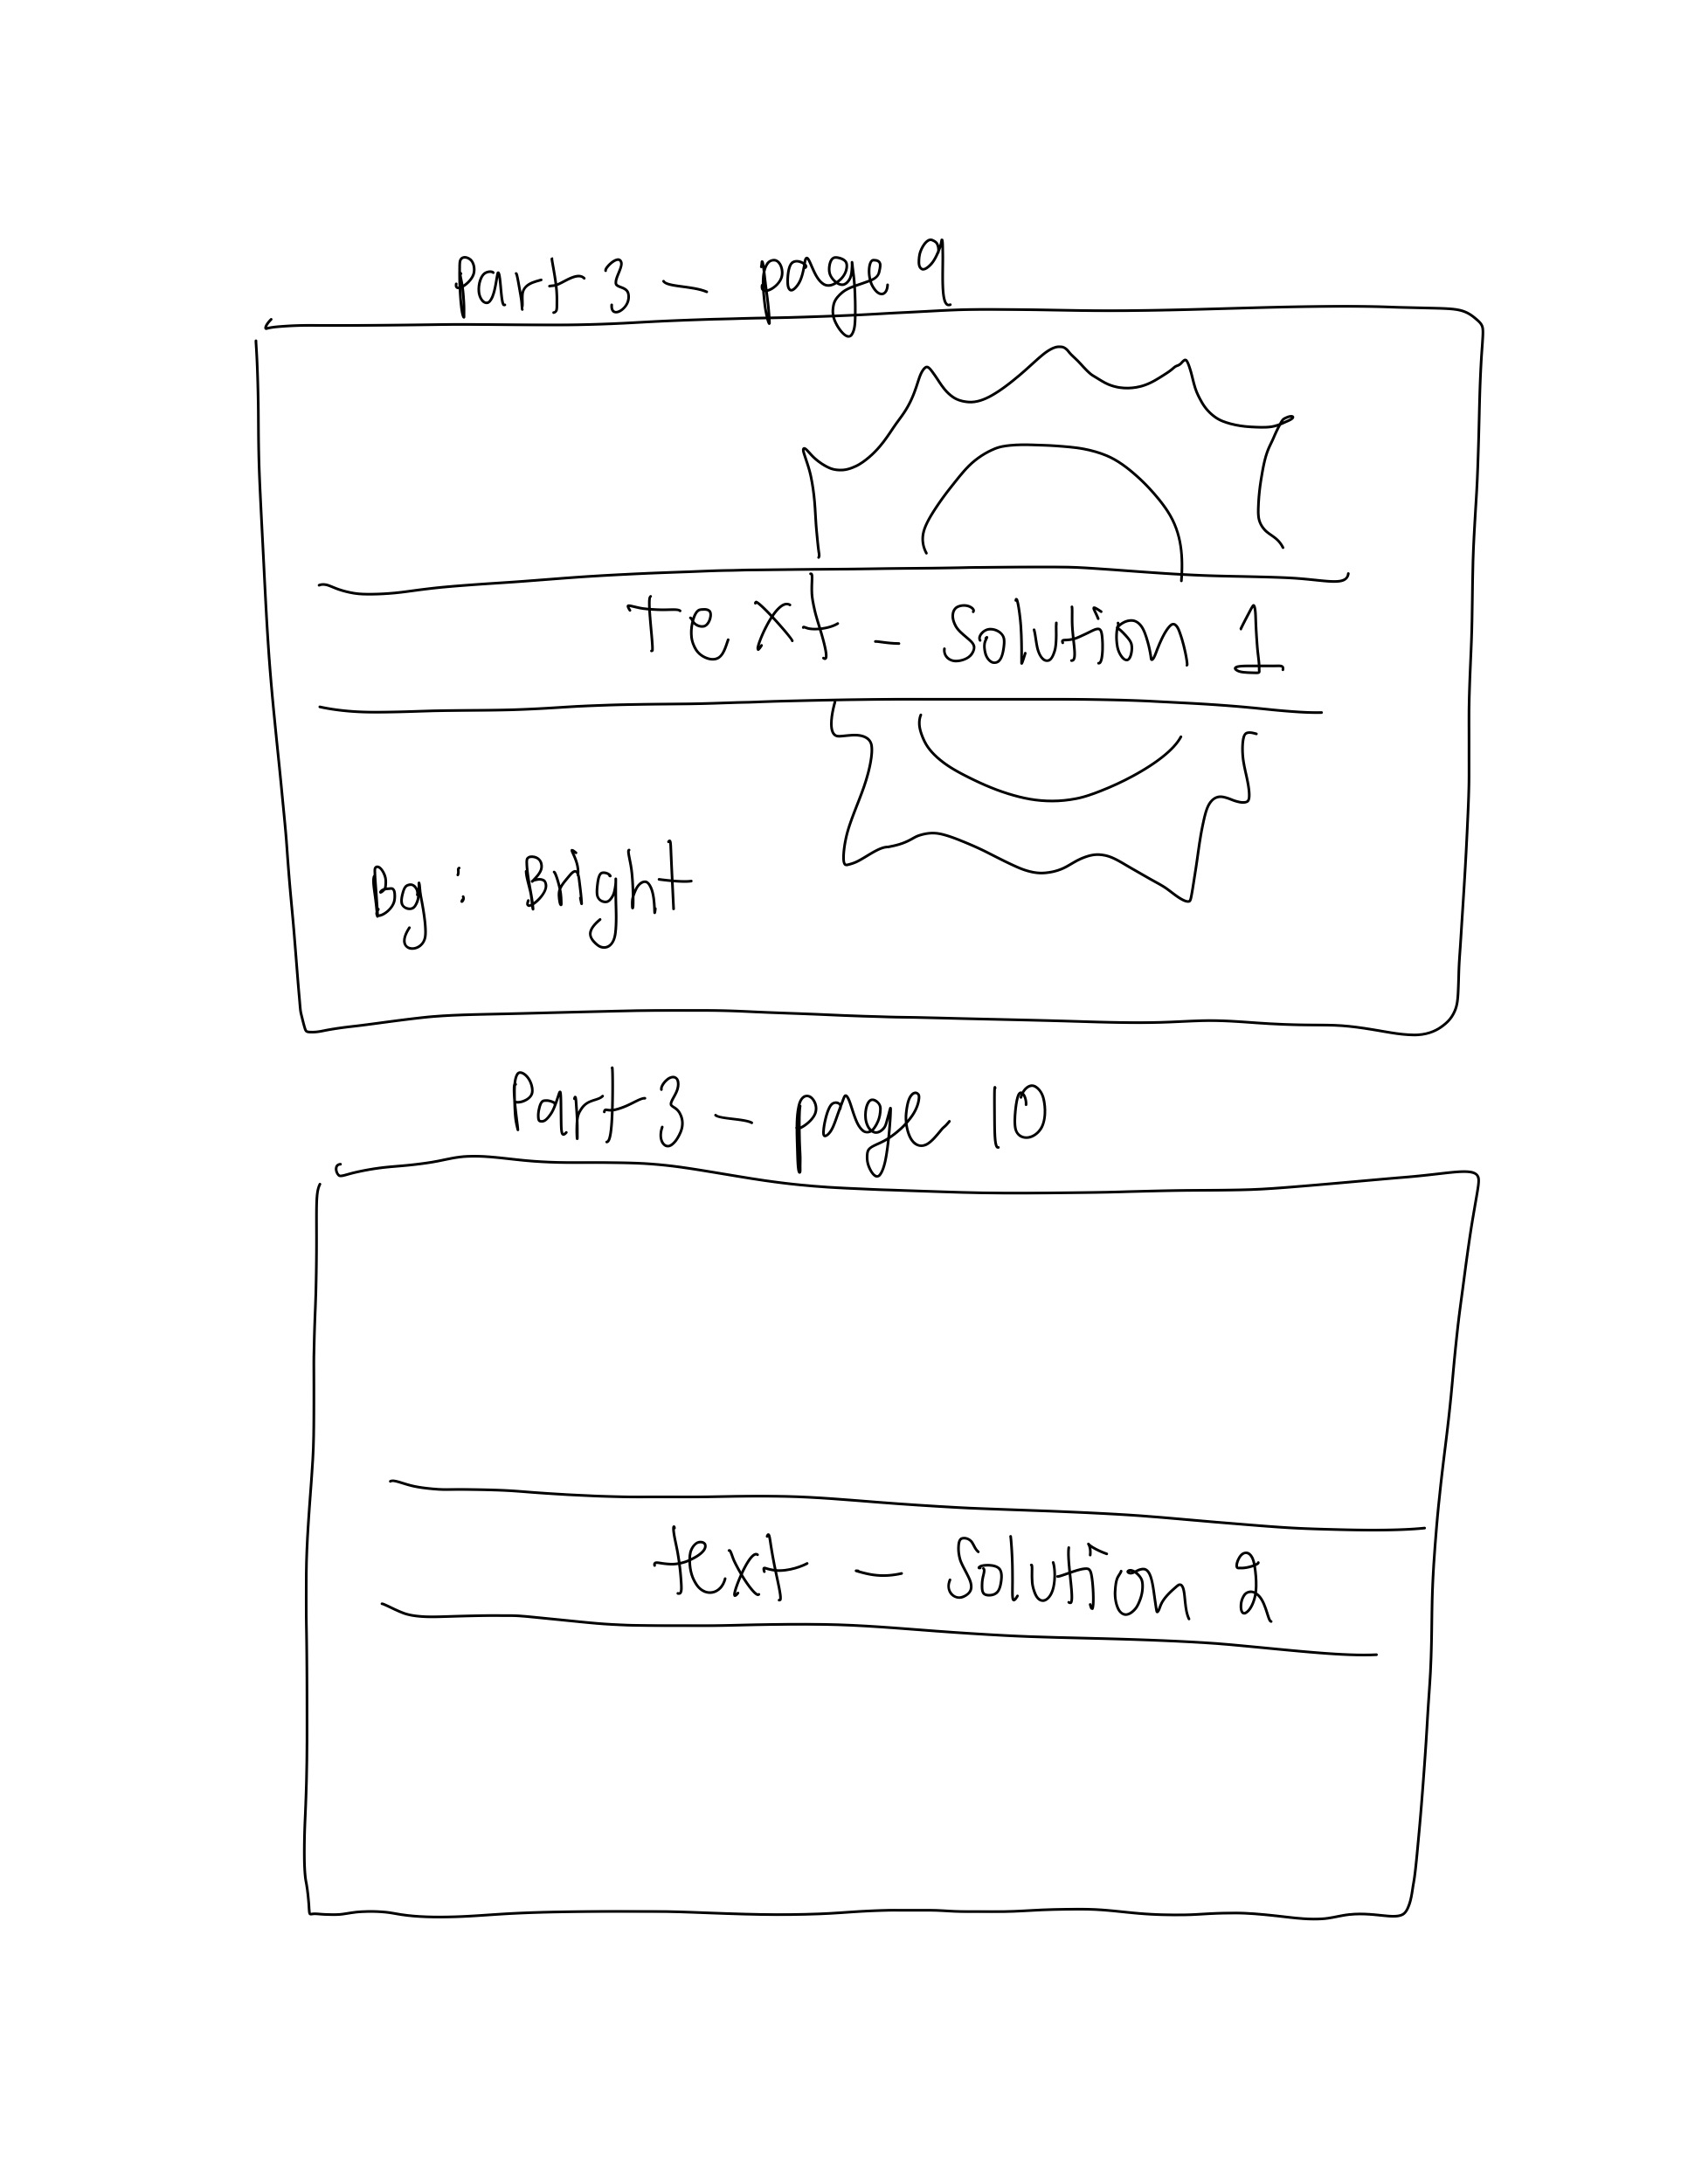 Part 3 - page 9
Text - Solution 1
Bg: Bright
Part 3 - page 10
text - Solution 2